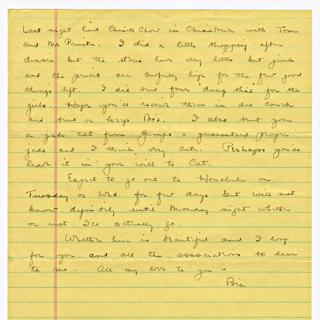 Last night had Chinese Chow in Chinatown with Tom
and Mr. I did a little shopping after
dinner but the stores had very little but junk
and the prices are awfully high for the few good
things left. I did find four things for the
girls. Hope you'll receive them in due course
and find or keep I also sent you
a jade cat from Gump's - guaranteed proper
jade and I think very cute. Perhaps you'll
leave it in your will to Cat.
Expect to go out to Honolulu on
Tuesday or Wed. for few days but will not
know definitely until Monday night whether
or not I'll actually go.
Weather here is beautiful and I long
for you and all the associations so dear
to me - All my love to you -